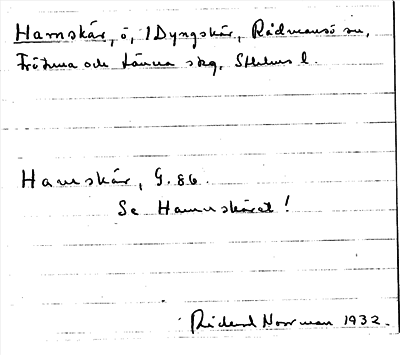 Hamnskär, ö, i Dyngskär, Rådmansö sn,
Frötuna och Länna skg, Sthlms l.
Hamnskär, G. 86.
Se Hamnskäret!
Rickard Norrman 1932.